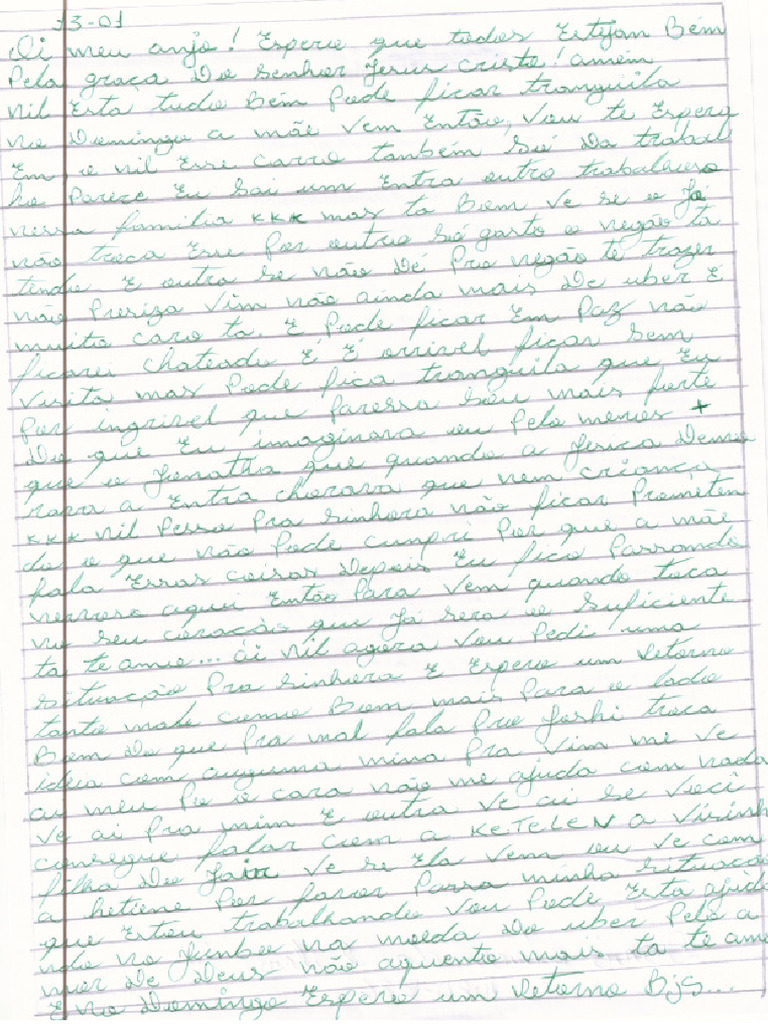 13-01
Oi meu anjo! Espero que todos Estejam Bém
Pela graça do senhor Jesus cristo! amém
Nil Esta tudo Bém Pode ficar tranquila
no Domingo a mãe vem Então, vou te Espera
Em, e nil Esse carro também Só da trabal
ho Parece Eu sai um Entra outro trabalhoso
nessa familia KKK mas ta Bom ve se o Já
não troca Esse Por outro só gasto o negão ta
tendo E outra se não dé Pro negão te trazer
não Presiza vim não ainda mais de uber É
muito caro ta. E Pode ficar Em Paz não
ficarei chateado É É orrivel ficar sem
visita mas Pode fica tranquila que Eu
Por ingrivel que Paressa sou mais forte
Do que Eu imaginava ou Pelo menos +
que o Jonatha que quando a Jesica Demo
rava a Entra chorava que nem criança
KKK nil Pesso Pra sinhora não ficar Prometen
do o que não Pode cumpri Por que a mãe
fala Essas coisas depois Eu fico Passando
nervoso aqui Então Para Vem quando toca
no seu coração que Já sera o suficiente
ta te amo... ai Nil agora vou Pedi uma
situação Pra sinhora E Espero um retorno
tanto malo como Bom mais Para o lado
Bom do que Pra mal fala Pro Joshi troca
ideia com auguma mina Pra vim me ve
ai meu Po o cara não me ajuda com nada
Ve ai Pra mim E outra Vê ai se você
consegue falar com a KETELEN a vizinh
filha do Jair Ve se Ela Vem ou ve com
a hetiene Por favor Passa minha situação
que Estou trabalhando vou Pode Esta ajuda
ndo no Jumbo na moeda do uber Pelo a
mor De Deus não aquento mais ta te amo
E no Domingo Espero um retorno Bjs...